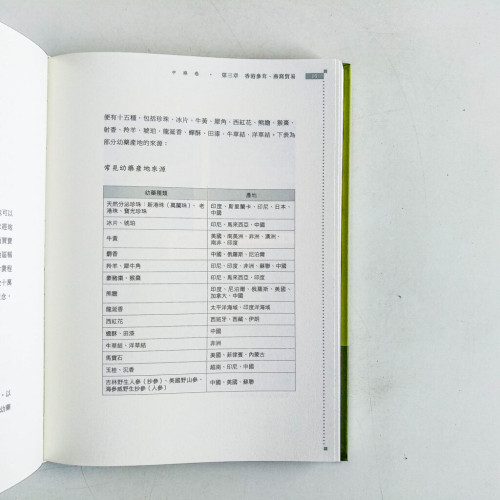 中藥卷 · 第三章 香港參茸、藥商貿易
便有十五種，包括珍珠、冰片、牛黃、犀角、西紅花、熊膽、猴棗、
射香、羚羊、琥珀、龍涎香、蟬酥、田漆、牛草結、洋草結。下表為
部分幼藥產地的來源：
常見幼藥產地來源
幼藥種類 產地
天然分泌珍珠：新港珠（異蘭珠）、老港珠、寶光珍珠 印度、斯里蘭卡、印尼、日本、中國
冰片、琥珀 印尼、馬來西亞、中國
牛黃 美國、南美洲、非洲、澳洲、南非、印度
麝香 中國、俄羅斯、尼泊爾
羚羊、犀牛角 印尼、印度、非洲、蘇聯、中國
豪豬棗、猴棗 印尼、馬來西亞、印度
熊膽 印度、尼泊爾、俄羅斯、美國、加拿大、中國
龍涎香 太平洋海域、印度洋海域
西紅花 西班牙、西藏、伊朗
蟬酥、斑漆 中國
牛草結、洋草結 非洲
馬寶石 美國、菲律賓、內蒙古
玉桂、沉香 越南、印尼、中國
吉林野生人參（抄參）、美國野山參、海參崴野生抄參（人參） 中國、美國、蘇聯